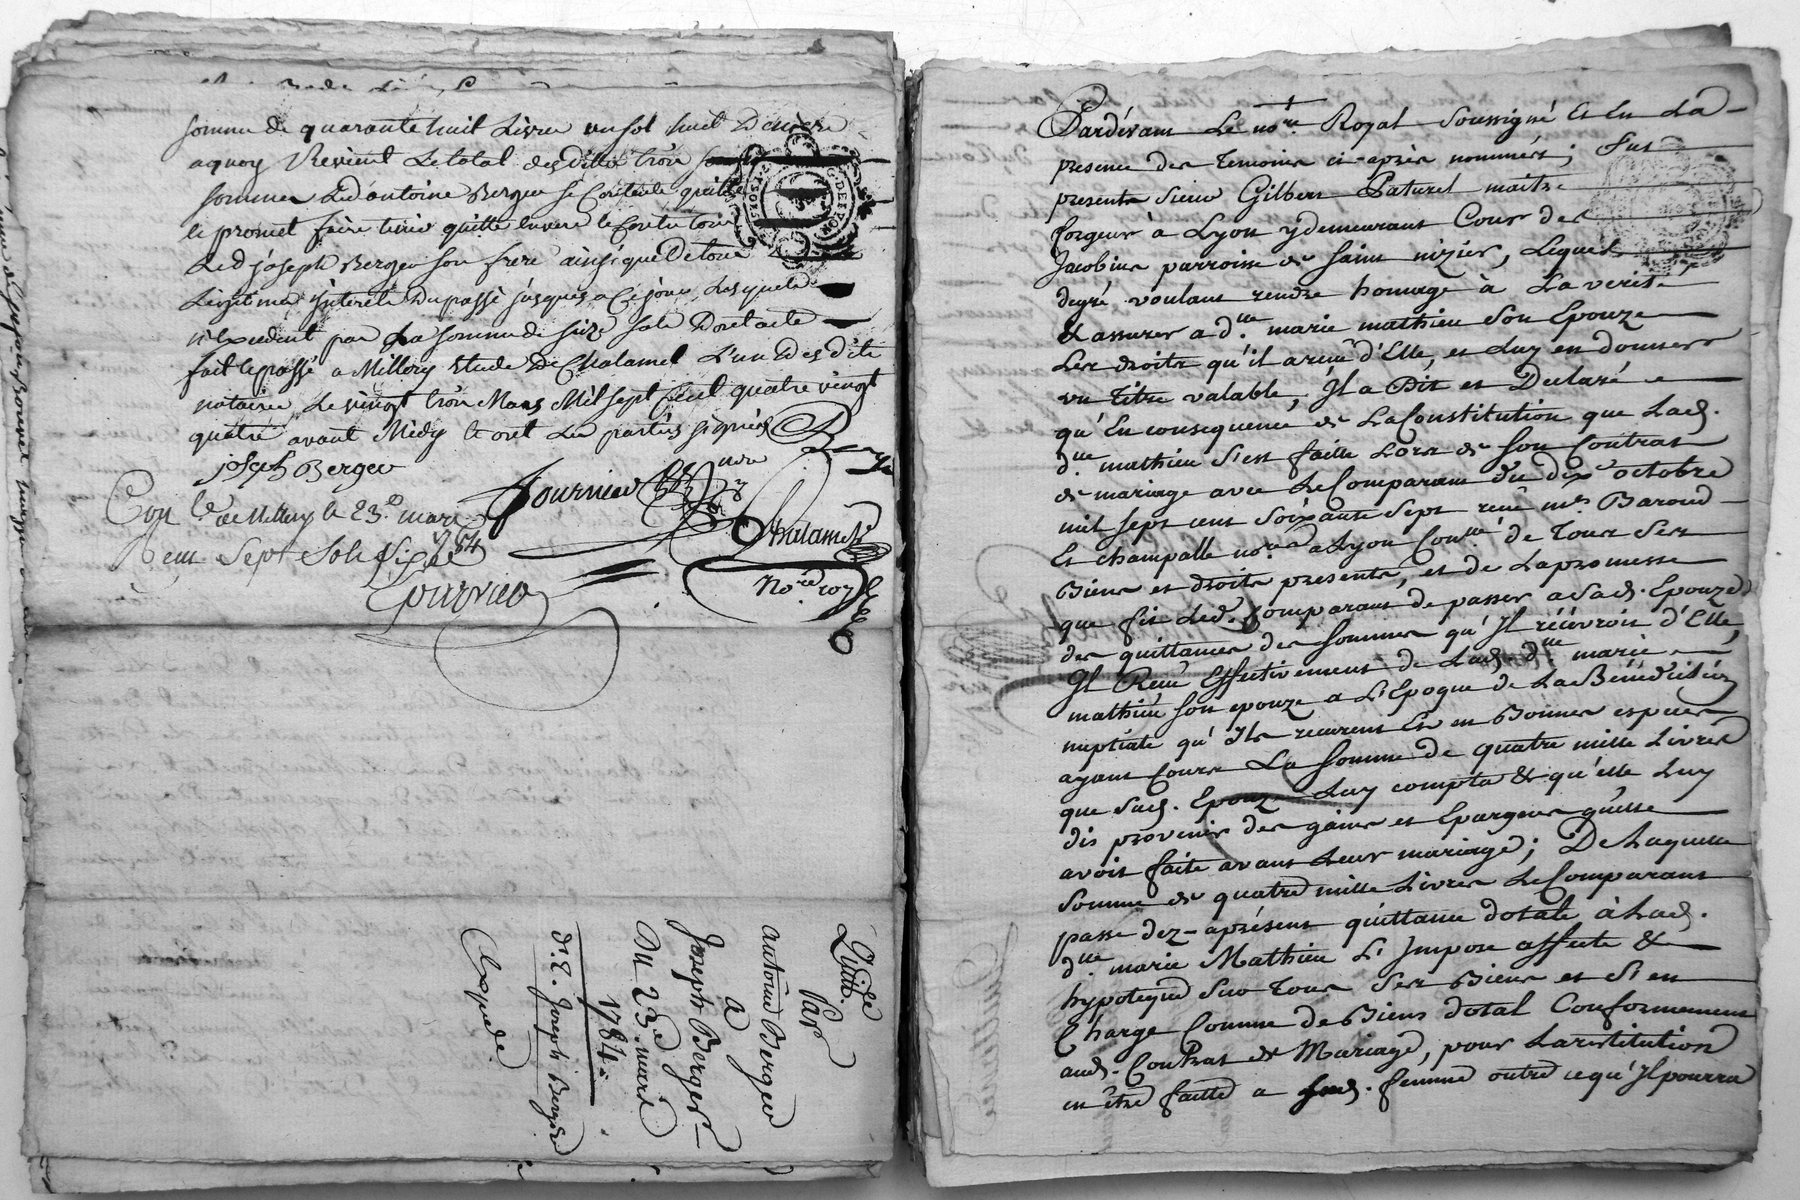 somme de quarante huit Livres un sol huit Deniers
aquoy Revient Le total desdittes trois
sommes Led antoine Berger se Contente quitte
et promet faire tenir quitte Envers
Led joseph Berger son frere ainsique De tous
Legitimes jnterets Du passé jusques a Ce jour Lesquels
n'Excedent pas La somme de seize sols Dont acte
fait et passé a Millery Etude De Chalamel L'un Desdits
notaires Le vingt trois Mars Mil sept Cent quatre vingt
quatre avant Midy et ont Les parties signées Berger
joseph Berger
Fournier
Chalamel
Nore roy
Con lé a Millery le 23e mars 1784
Recu Sept Sols six de
Fournier
Quittce
Par
antoine Berger
a
Joseph Berger
Du 23e mars
1784
d. E. Joseph Berger
Expede
Pardevant Le nore Royal Soussigné Et En La
presence des temoins ci-après nommés; Fut
present Sieur Gilbert Paturel maitre
forgeur à Lyon ydemeurant Cour des
Jacobins parroisse de saint nizier, Lequel
degré voulant rendre homage à La verité
& assurer a dlle marie mathieu Son Epouze
Les droits qu'il a recu d'Elle, et Luy en donner
un titre valable, jl a Dit et Declaré
qu'En consequence de La Constitution que Lad.
dlle mathieu S'est faitte Lors de Son Contrat
de mariage avec Le Comparant du dix octobre
mil sept cent Soixante Sept recu me Baroud
Et champalle nores a Lyon Contnt de Tous Ses
Biens et droits presents, et de La promesse
que fit Led. Comparant de passer a Sad. Epouze
des quittances des Sommes qu'Jl récevroit d'Elle,
Jl Recu Effectivement de Lad. dlle marie
mathieu Son epouze a L'Epoque de La Bénédiction
nuptiale qu'Jls recurent Et en Bonnes especes
ayant Cours La Somme de quatre mille Livres
que Sad. Epouze Luy compta & qu'elle Luy
dit provenir des gains et Epargnes qu'elle
avoit faite avant Leur mariage; De Laquelle
Somme de quatre mille Livres Le Comparant
passe dez-aprésent quittance dotale à Lad.
dlle marie Mathieu L'Jmpose affecte &
hypoteque Sur Tous Ses Biens et S'en
Charge Comme de Biens dotal Conformement
aud. Contrat de Mariage, pour La restitution
en être faitte a Sad. femme outre ce qu'Jl pourra